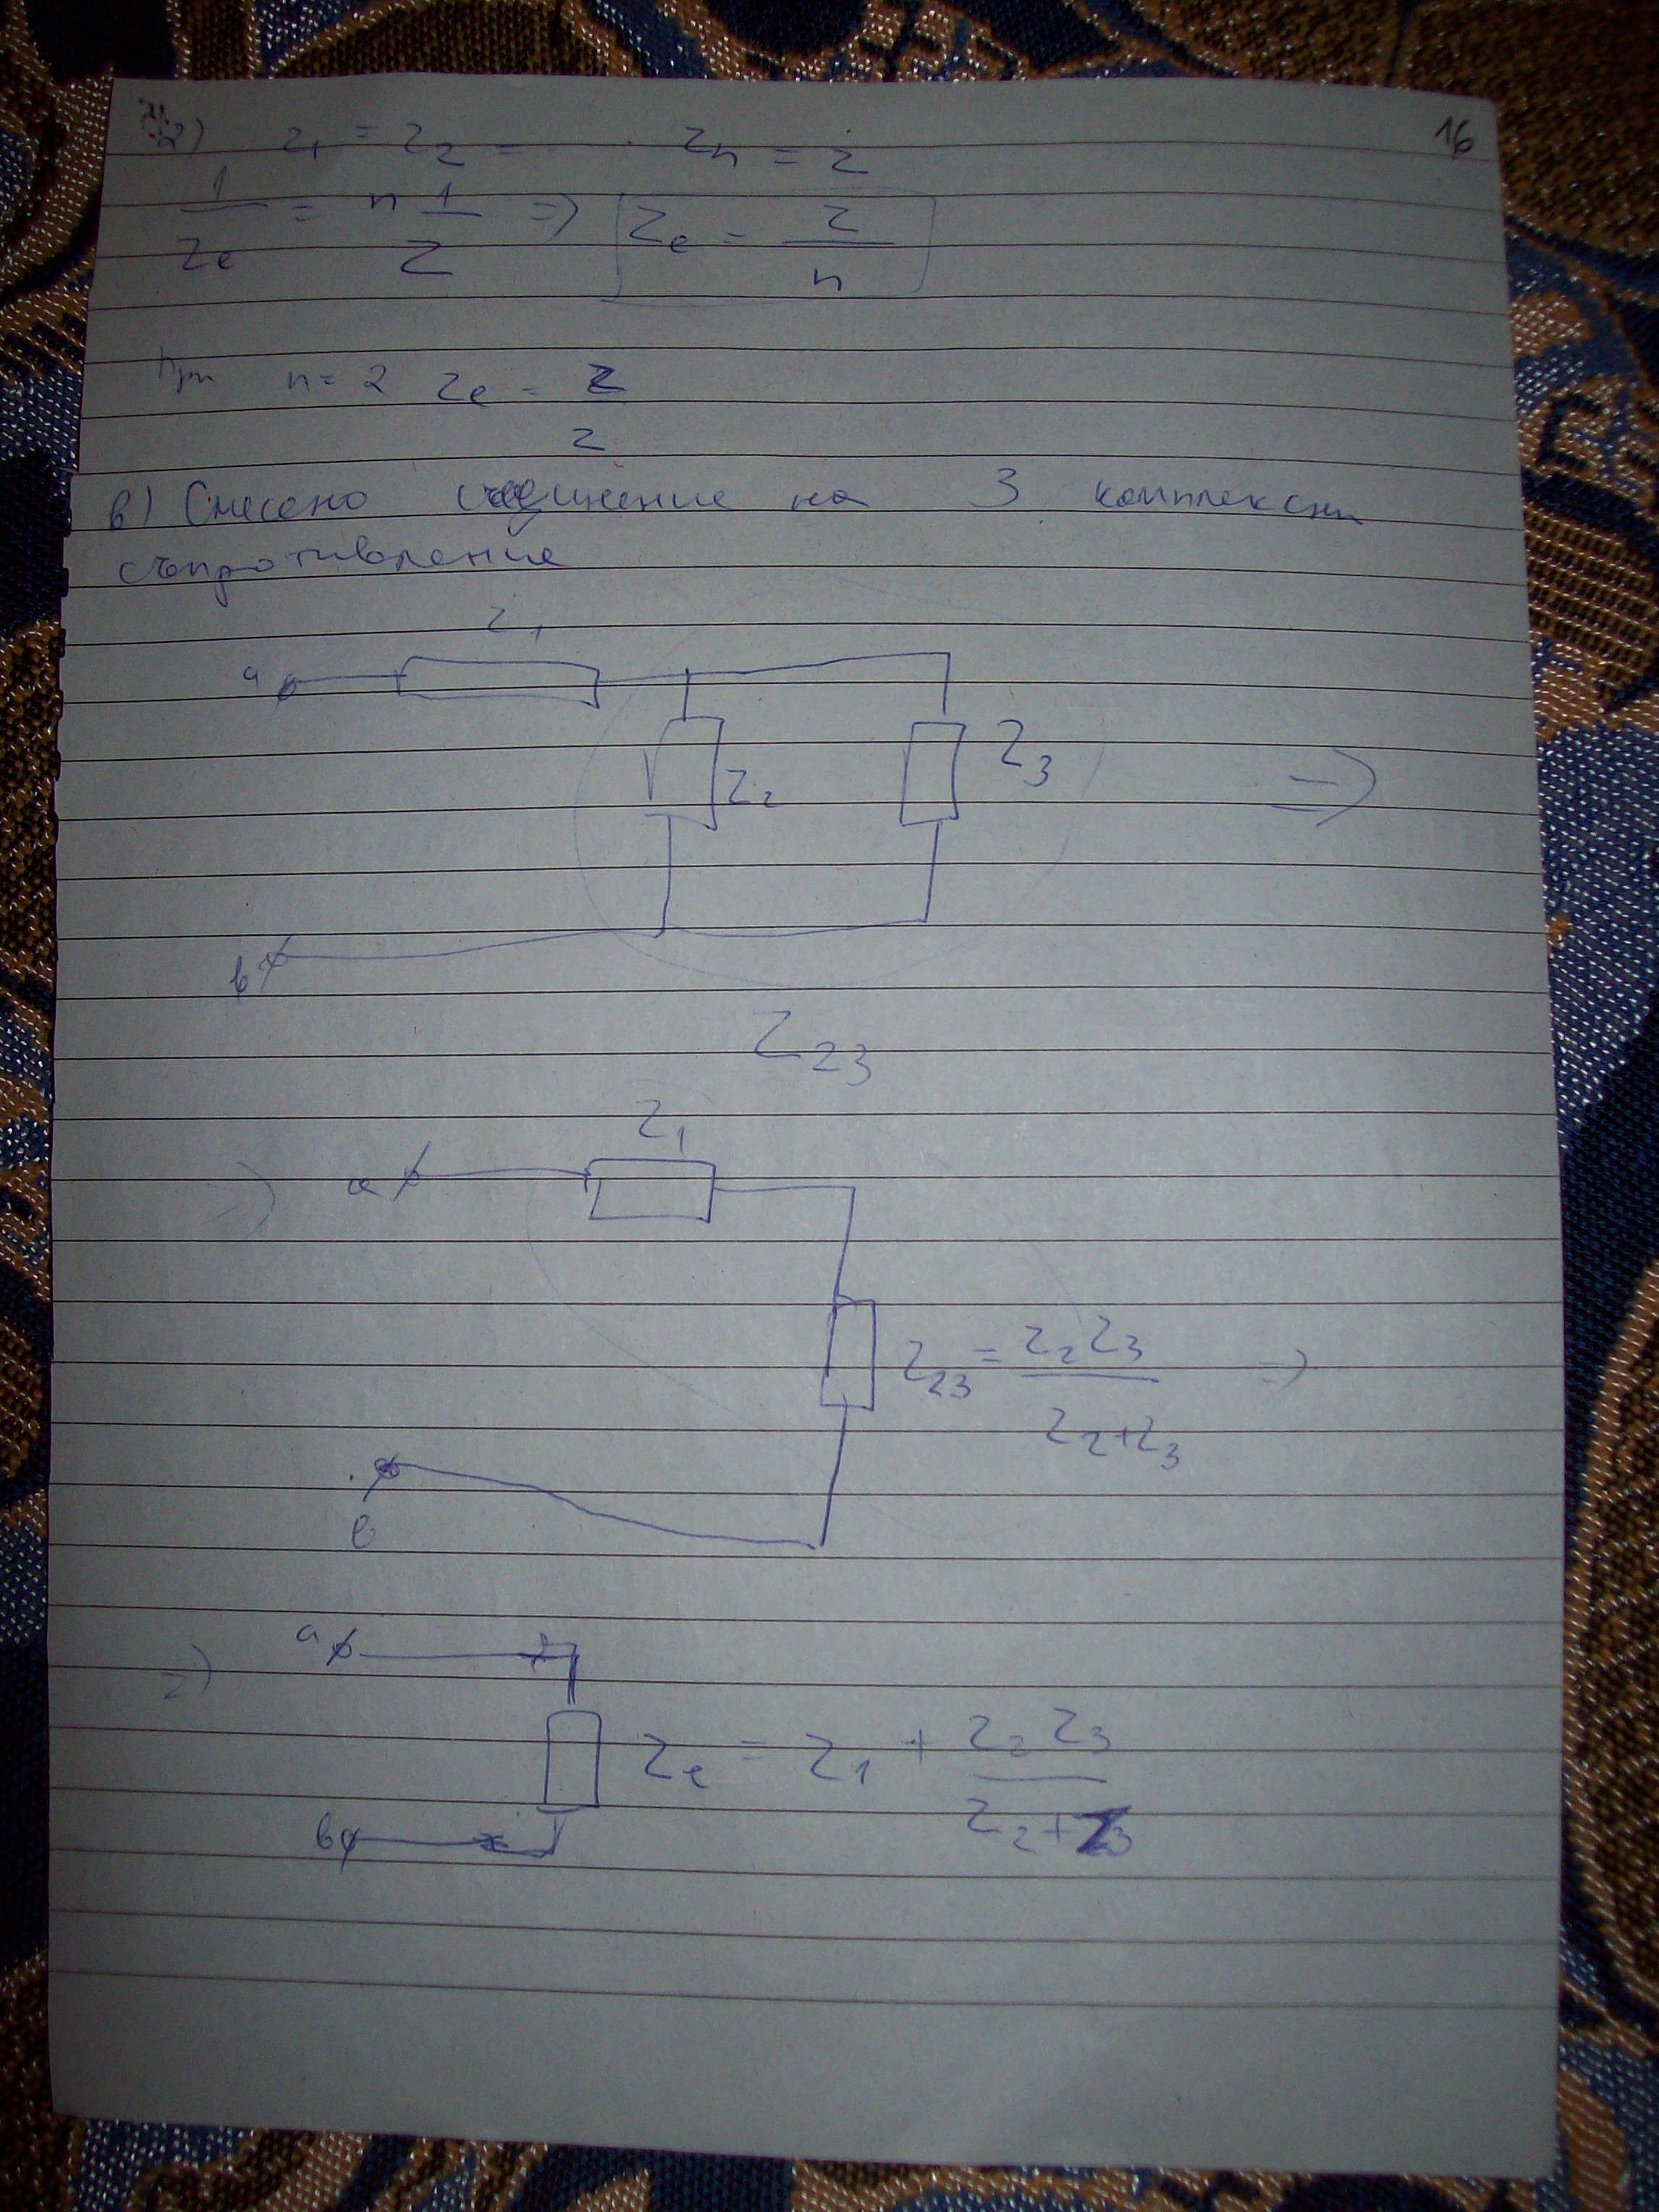 16
2) Z1 = Z2 = . . . Zn = Z
1/Ze = n 1/Z => Ze = Z/n
При n = 2 Ze = Z/2
в) Смесено съединение на 3 комплексни
съпротивление
Z1
a
Z2
Z3
=>
b
Z23
Z1
=> a
Z23 = Z2 Z3 / Z2+Z3 =>
в
a
=>
Ze = Z1 + Z2 Z3 / Z2+Z3
в